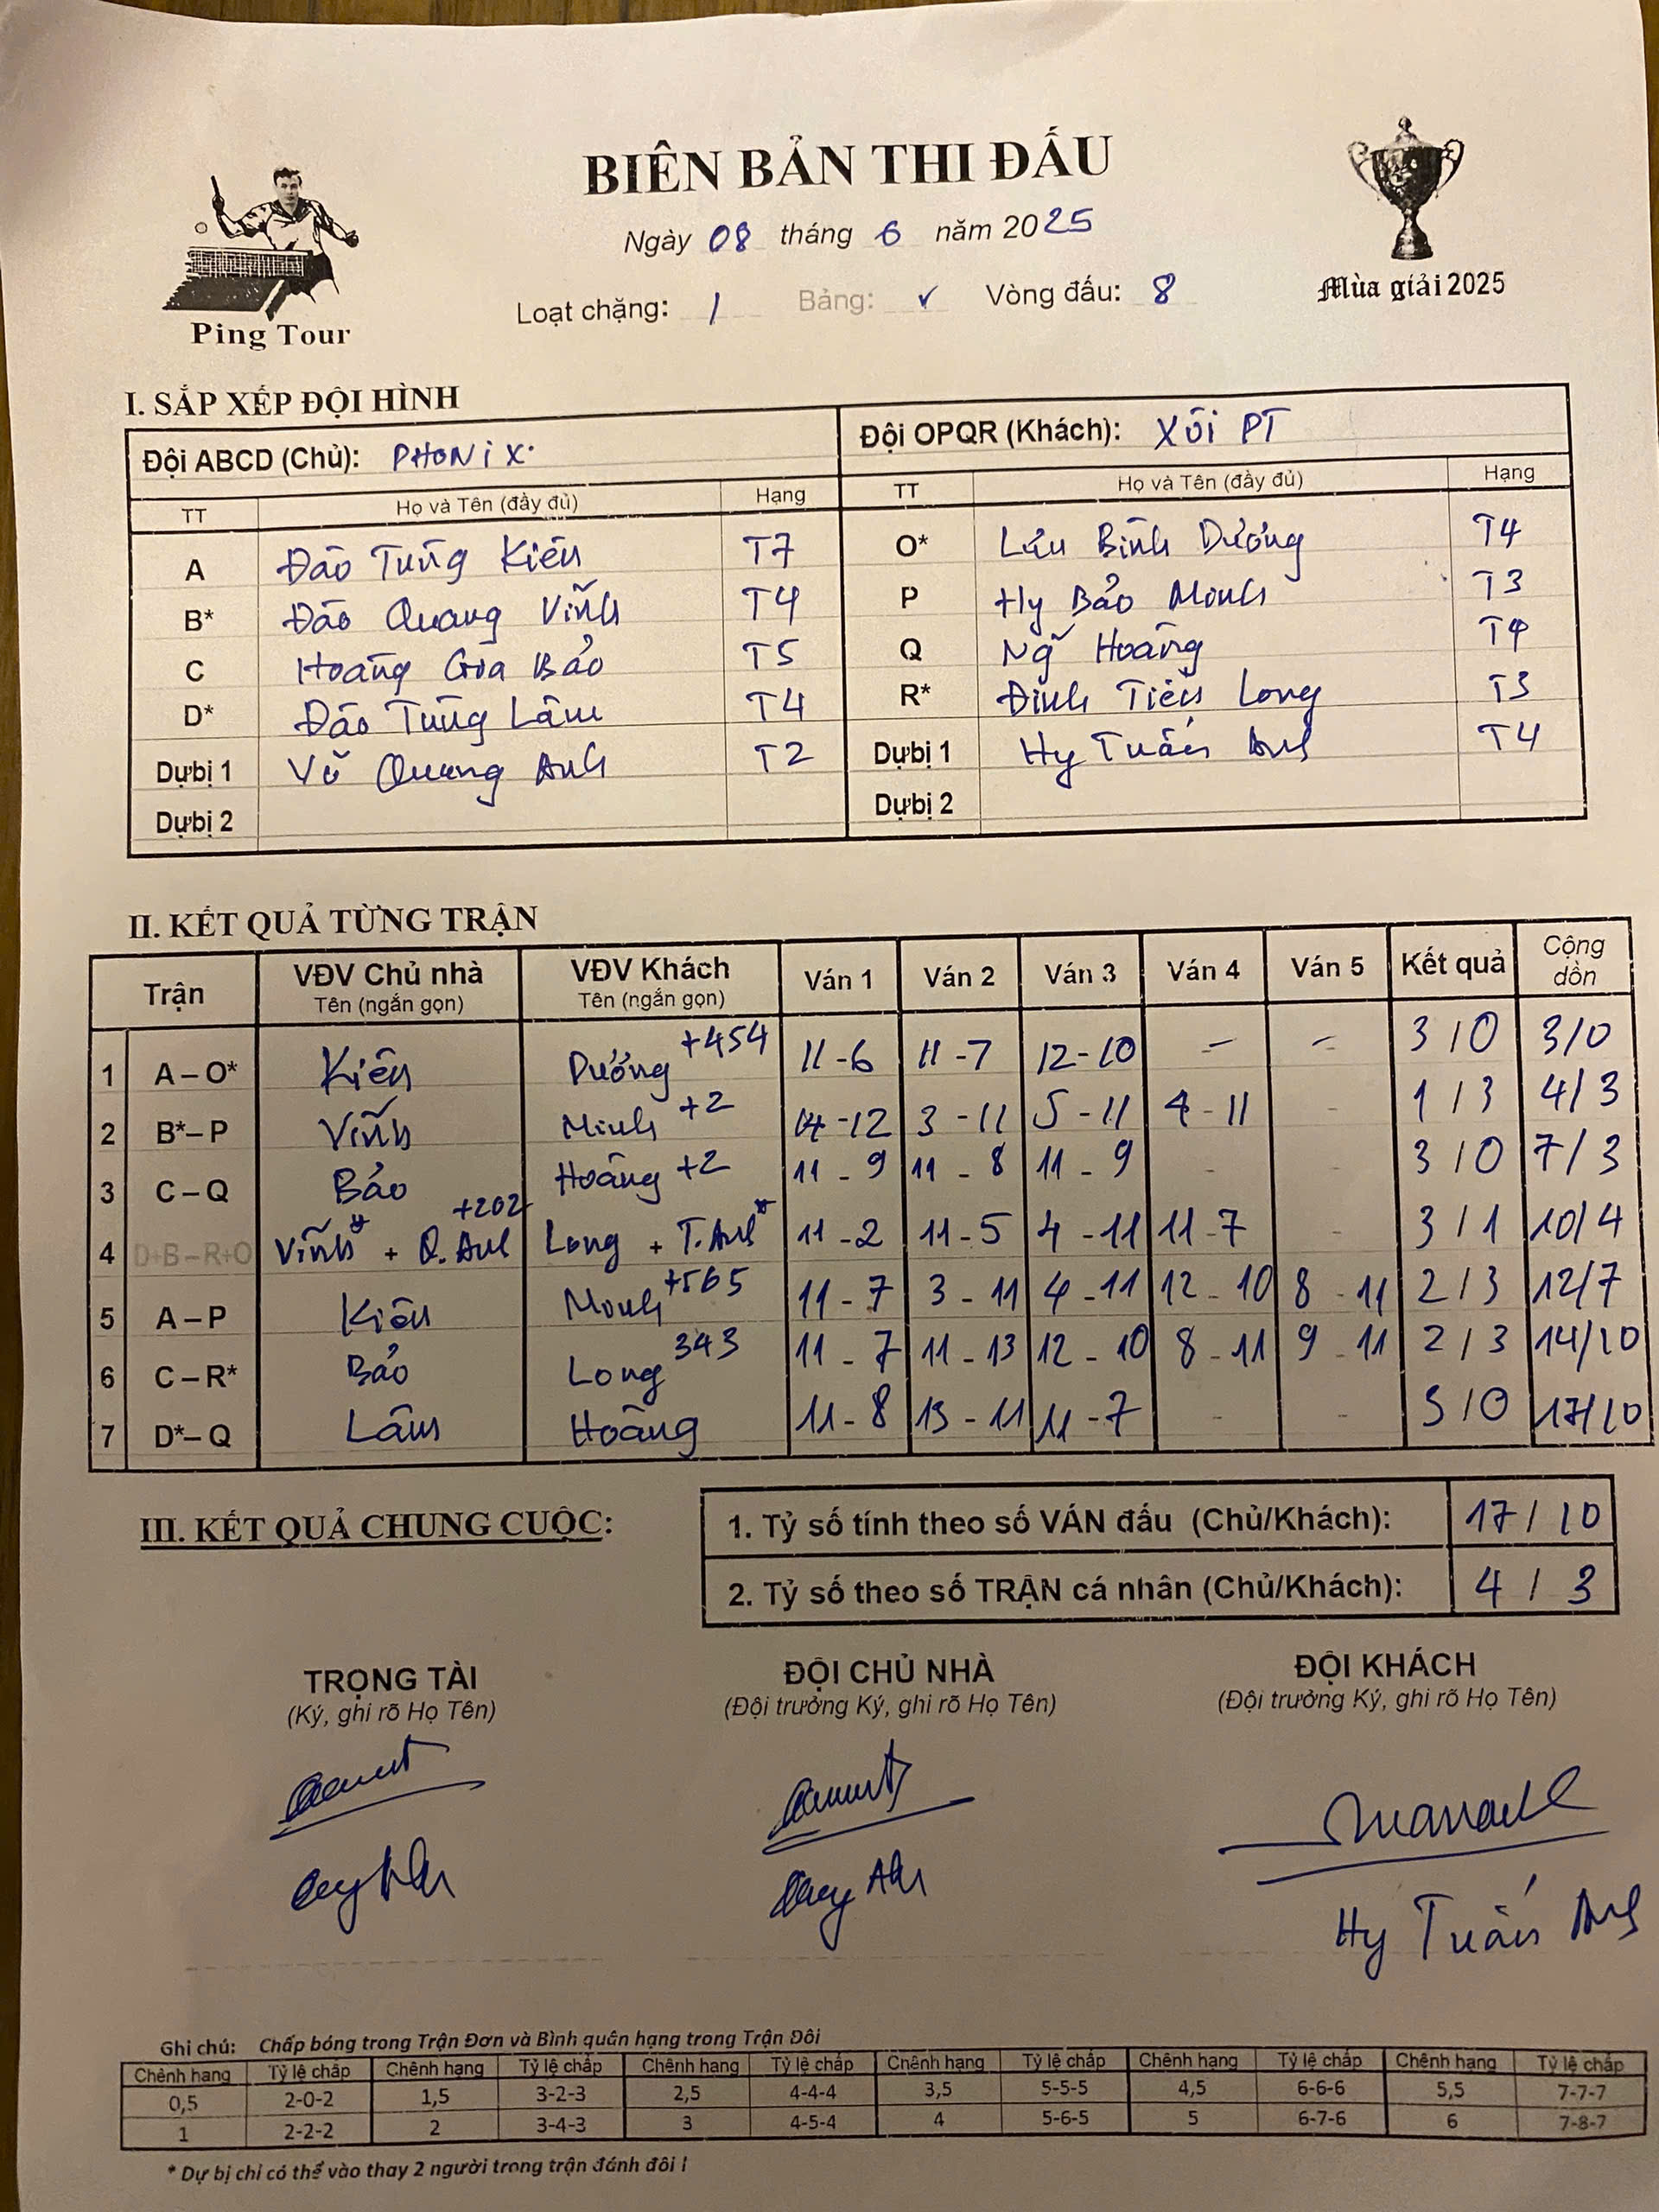 BIÊN BẢN THI ĐẤU
Ngày 08 tháng 6 năm 2025
Loạt chặng: 1 Bảng: ✓ Vòng đấu: 8
Ping Tour
Mùa giải 2025
I. SẮP XẾP ĐỘI HÌNH
Đội ABCD (Chủ): PHONIX. Đội OPQR (Khách): XÔI PT
TT Họ và Tên (đầy đủ) Hạng TT Họ và Tên (đầy đủ) Hạng
A Đào Tùng Kiên T7 O* Lưu Bình Dương T4
B* Đào Quang Vĩnh T4 P Hy Bảo Minh T3
C Hoàng Gia Bảo T5 Q Ng~ Hoàng T4
D* Đào Tùng Lâm T4 R* Đinh Tiến Long T3
Dự bị 1 Vũ Quang Anh T2 Dự bị 1 Hy Tuấn Anh T4
Dự bị 2 Dự bị 2
II. KẾT QUẢ TỪNG TRẬN
Trận VĐV Chủ nhà VĐV Khách Ván 1 Ván 2 Ván 3 Ván 4 Ván 5 Kết quả Cộng dồn
Tên (ngắn gọn) Tên (ngắn gọn)
1 A – O* Kiên Dương +454 11-6 11-7 12-10 - - 3/0 3/0
2 B* – P Vĩnh Minh +2 14-12 3-11 5-11 4-11 - 1/3 4/3
3 C – Q Bảo Hoàng +2 11-9 11-8 11-9 - - 3/0 7/3
4 D+B – R+O Vĩnh* + Q.Anh +202 Long + T.Anh* 11-2 11-5 4-11 11-7 - 3/1 10/4
5 A – P Kiên Minh +565 11-7 3-11 4-11 12-10 8-11 2/3 12/7
6 C – R* Bảo Long 343 11-7 11-13 12-10 8-11 9-11 2/3 14/10
7 D* – Q Lâm Hoàng 11-8 13-11 11-7 - - 3/0 17/10
III. KẾT QUẢ CHUNG CUỘC:
1. Tỷ số tính theo số VÁN đấu (Chủ/Khách): 17/10
2. Tỷ số theo số TRẬN cá nhân (Chủ/Khách): 4/3
TRỌNG TÀI ĐỘI CHỦ NHÀ ĐỘI KHÁCH
(Ký, ghi rõ Họ Tên) (Đội trưởng Ký, ghi rõ Họ Tên) (Đội trưởng Ký, ghi rõ Họ Tên)
Hy Tuấn Anh
Ghi chú: Chấp bóng trong Trận Đơn và Bình quân hạng trong Trận Đôi
Chênh hạng Tỷ lệ chấp Chênh hạng Tỷ lệ chấp Chênh hạng Tỷ lệ chấp Chênh hạng Tỷ lệ chấp Chênh hạng Tỷ lệ chấp Chênh hạng Tỷ lệ chấp
0,5 2-0-2 1,5 3-2-3 2,5 4-4-4 3,5 5-5-5 4,5 6-6-6 5,5 7-7-7
1 2-2-2 2 3-4-3 3 4-5-4 4 5-6-5 5 6-7-6 6 7-8-7
* Dự bị chỉ có thể vào thay 2 người trong trận đánh đôi !